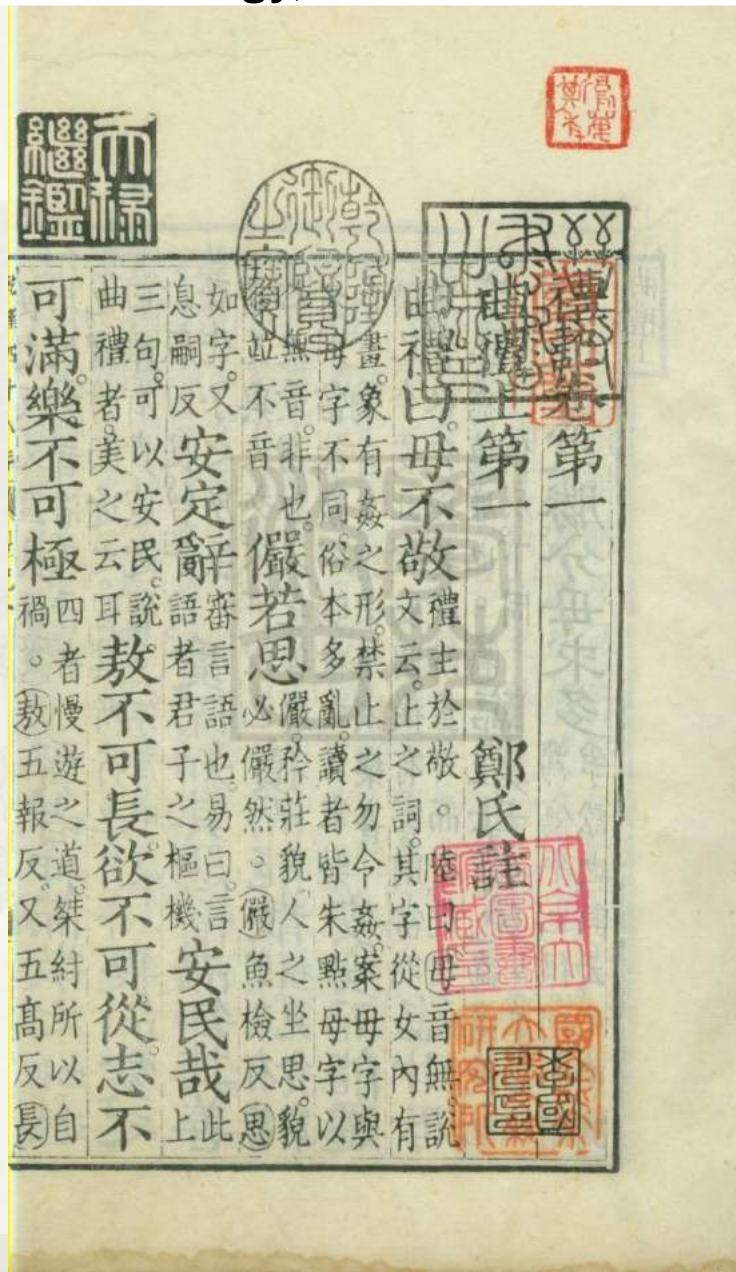 天祿
繼鑑
乾隆御覽之寶
禮記卷第一
曲禮上第一 鄭氏註
曲禮曰。毋不敬
禮主於敬。陸曰毋音無。說
文云。止之詞。其字從女內有
畫。象有姦之形。禁止之勿令姦。案毋字與
母字不同。俗本多亂。讀者皆朱點母字以
無音。非也。
竝不音
儼若思
儼。矜莊貌。人之坐思。貌
必儼然。儼魚檢反思
如字。又
息嗣反
安定辭
審言語也。易曰。言
語者君子之樞機
安民哉
此
上
三句。可以安民。說
曲禮者。美之云耳
敖不可長。欲不可從。志不
可滿。樂不可極
四者慢遊之道。桀紂所以自
禍。敖五報反。又五高反長